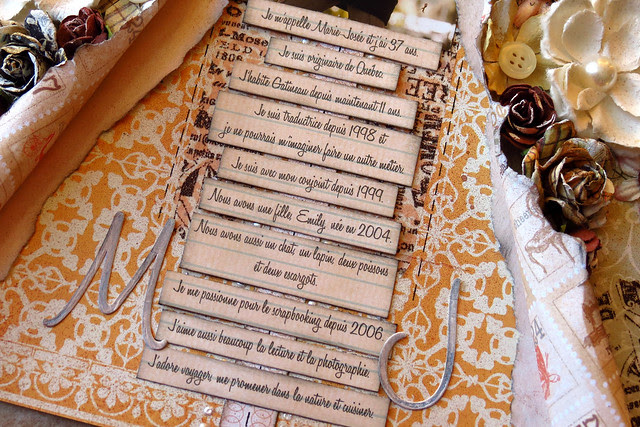 Je m'appelle Marie Josée et j'ai 37 ans.
Je suis originaire de Québec.
J'habite Gatineau depuis maintenant 11 ans.
Je suis traductrice depuis 1998 et
je ne pourrais m'imaginer faire un autre métier.
Je suis avec mon conjoint depuis 1999.
Nous avons une fille, Emily, née en 2004.
Nous avons aussi un chat, un lapin, deux poissons
et deux escargots.
Je me passionne pour le scrapbooking depuis 2006
J'aime aussi beaucoup la lecture et la photographie.
J'adore voyager, me promener dans la nature et cuisiner.
M J